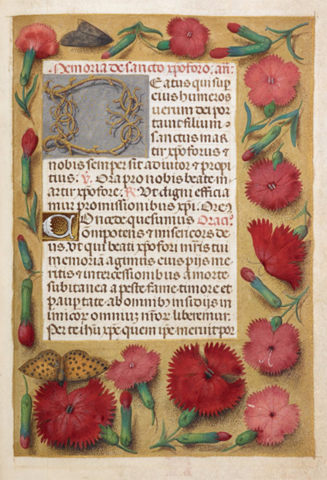 Memoria de sancto xpoforo. an̄:
Beatus qui sup
eius humeros
uerum dei por
tauit filium
sanctus mar
tir xpoforus &
nobis semper sit adiutor & propi
tius. ℣. Ora pro nobis beate m
artir xpofore. ℟. Ut digni efficia
mur promissionibus xpi. Ore͂
Concede quesumus Oracio.
omnipotens & misericors de
us. ut qui beati xpofori m̄ris tui
memoriam agimus eius pijs me
ritis & intercessionibus a morte
subitanea a peste fame timore et
paupertate ab omnibus insidijs in
imicorum omnium nostrorum liberemur.
Per te ihu xpe quem ipse meruit por